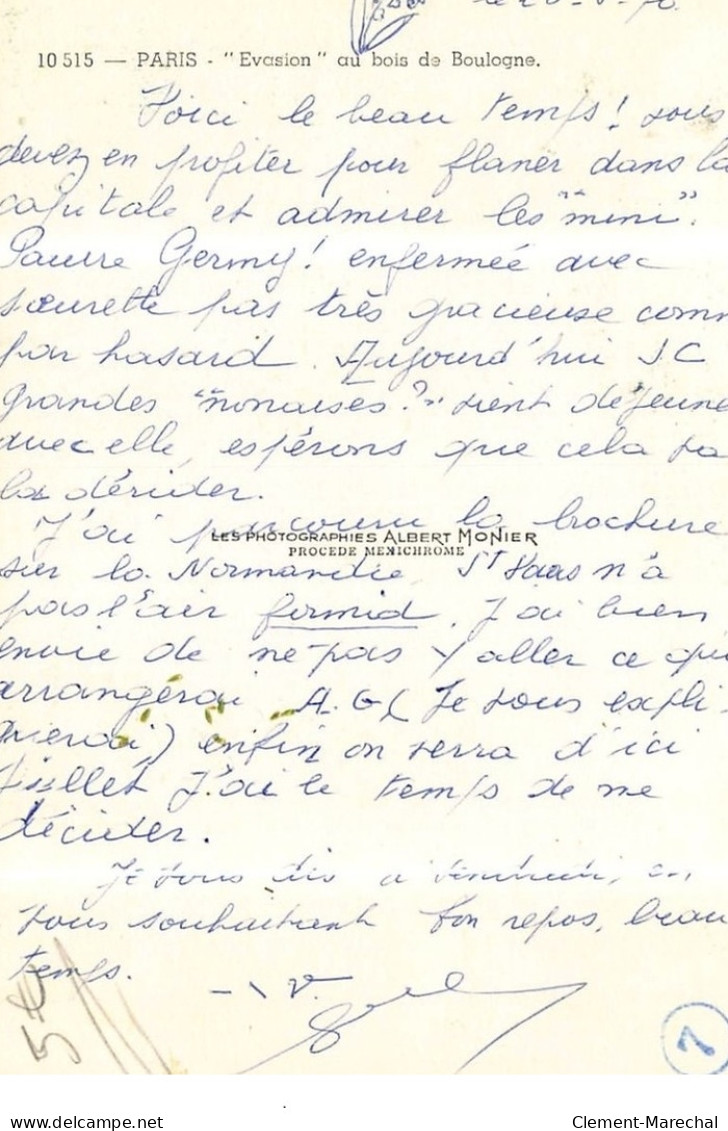 10 515 — PARIS - "Evasion" au bois de Boulogne.
Voici le beau temps! vous
devez en profiter pour flaner dans la
capitale et admirer les "mini".
Pauvre Germy! enfermeé avec
sœurette pas très gracieuse comm
par hasard. Aujourd'hui JC
grandes "nonaises?" vient déjeune
avec elle, espérons que cela va
la dérider.
J'ai parcouru la brochure
LES PHOTOGRAPHIES ALBERT MONIER
PROCEDE MENICHROME
sur la Normandie, St Vaas n'a
pas l'air formid. J'ai bien
envie de ne pas y aller ce qui
arrangerai A.G (Je vous expli-
querai) enfin on verra d'ici
Juillet J'ai le temps de me
décider.
Je vous dis a vendredi, en
vous souhaitant bon repos, beau
temps.
5€
7
delcampe.net
Clement-Marechal